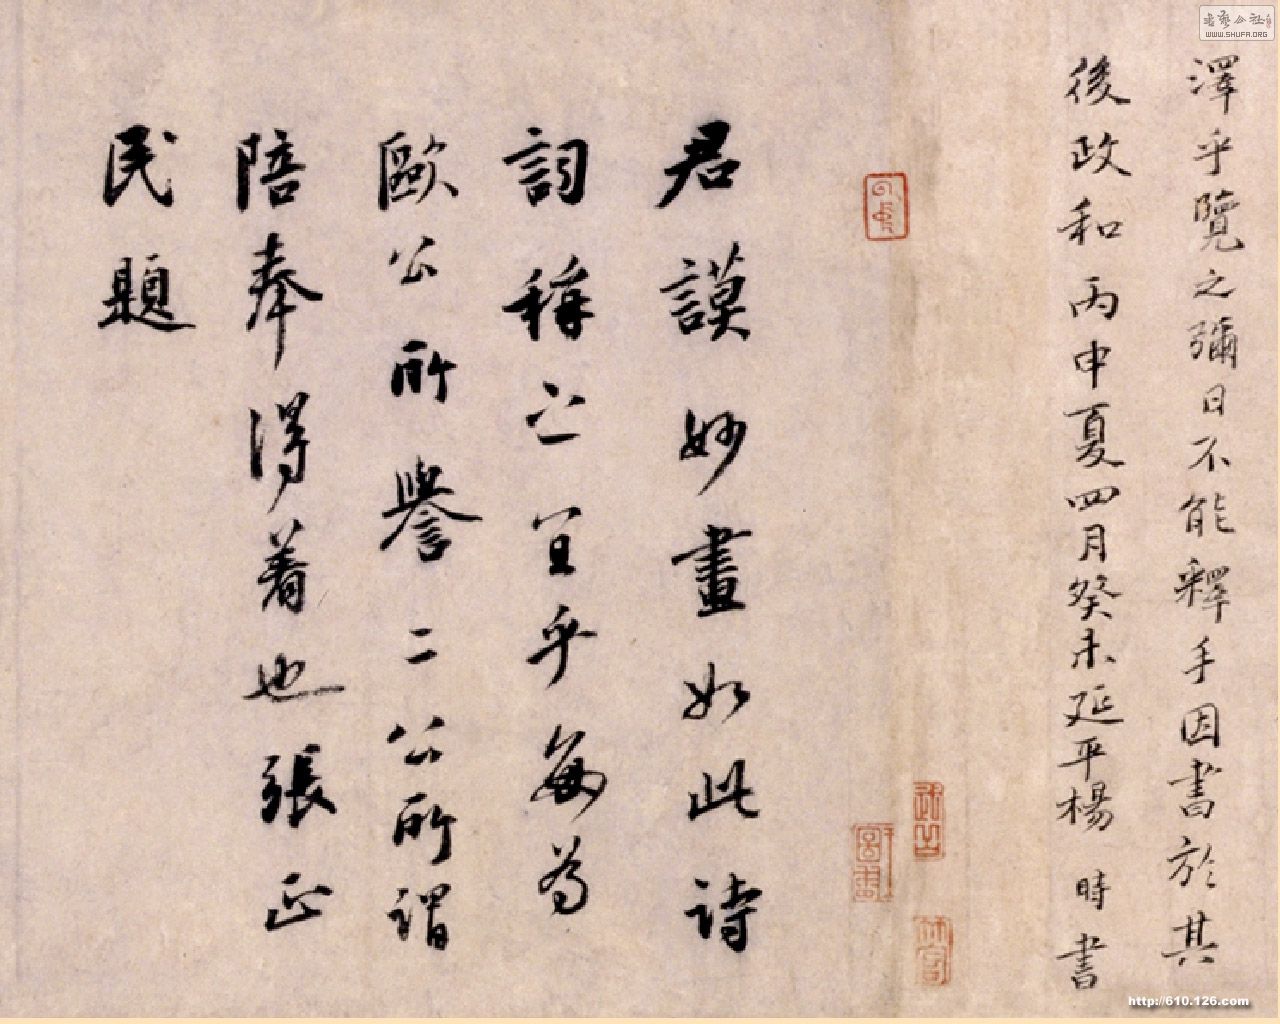 澤乎覽之彌日不能釋手因書於其
後政和丙申夏四月癸未延平楊時書
君謨妙畫如此詩
詞稱之宜乎每為
歐公所譽二公所謂
陪奉得着也張正
民題
書藝公社
WWW.SHUFA.ORG
http://610.126.com